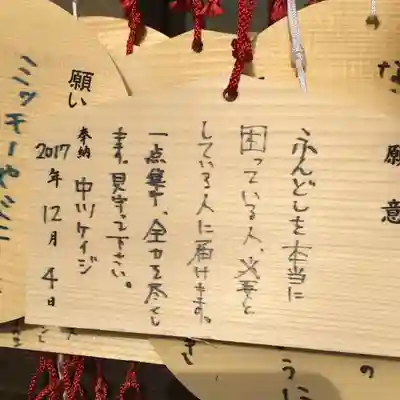 ふんどしを本当に
困っている人、必要と
している人に届けます。
一点集中、全力を尽くし
ます。見守って下さい。
奉納 中川ケイジ
2017年12月4日
願い
ミッキーや
願意